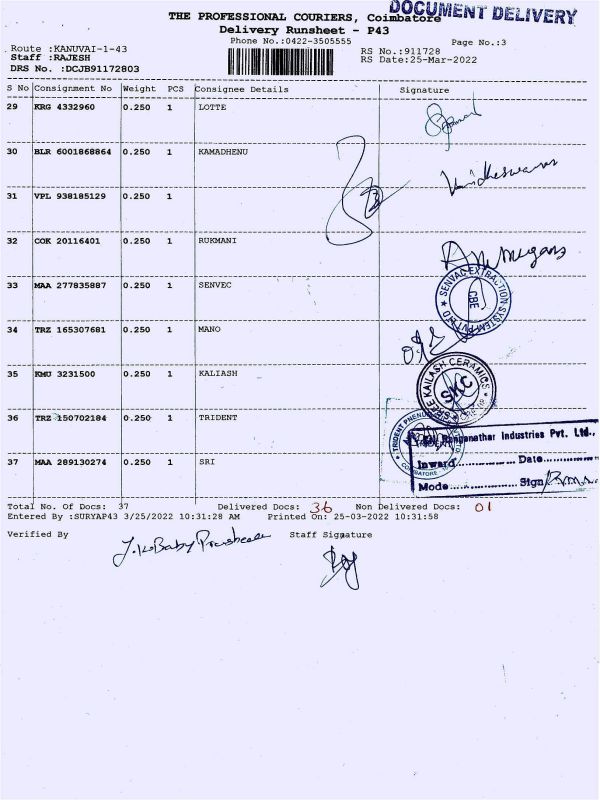 DOCUMENT DELIVERY
THE PROFESSIONAL COURIERS, Coimbatore
Delivery Runsheet - P43
Phone No.:0422-3505555
Page No.:3
Route :KANUVAI-1-43
Staff :RAJESH
DRS No. :DCJB91172803
RS No.:911728
RS Date:25-Mar-2022
S No Consignment No Weight PCS Consignee Details Signature
29 KRG 4332960 0.250 1 LOTTE
30 BLR 6001868864 0.250 1 KAMADHENU
31 VPL 938185129 0.250 1
32 COK 20116401 0.250 1 RUKMANI
33 MAA 277835887 0.250 1 SENVEC
SENVAC EXTRACTION SYSTEM PVT LTD
CBE
34 TRZ 165307681 0.250 1 MANO
35 KMU 3231500 0.250 1 KALIASH
KAILASH CERAMICS
SKC
36 TRZ 150702184 0.250 1 TRIDENT
TRIDENT
COIMBATORE
Industries Pvt. Ltd.,
37 MAA 289130274 0.250 1 SRI
Inward............... Date...............
Mode............... Sign
Total No. Of Docs: 37 Delivered Docs: 36 Non Delivered Docs: 01
Entered By :SURYAP43 3/25/2022 10:31:28 AM Printed On: 25-03-2022 10:31:58
Verified By Staff Signature